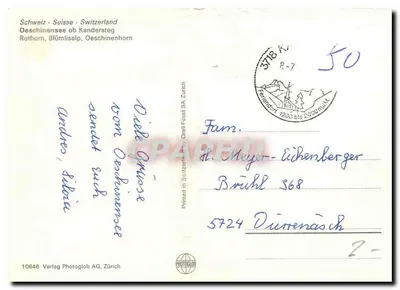 Schweiz - Suisse - Switzerland
Oeschinensee ob Kandersteg
Rothorn, Blümlisalp, Oeschinenhorn
Viele Grüsse
vom Oeschinensee
sendet Euch
Andres, Silvia
Printed in Switzerland
Orell Füssli SA, Zürich
3718 K
8-7
1200
50
Fam.
H. Meyer-Eichenberger
Brühl 368
5724 Dürrenäsch
2-
10646 Verlag Photoglob AG, Zürich